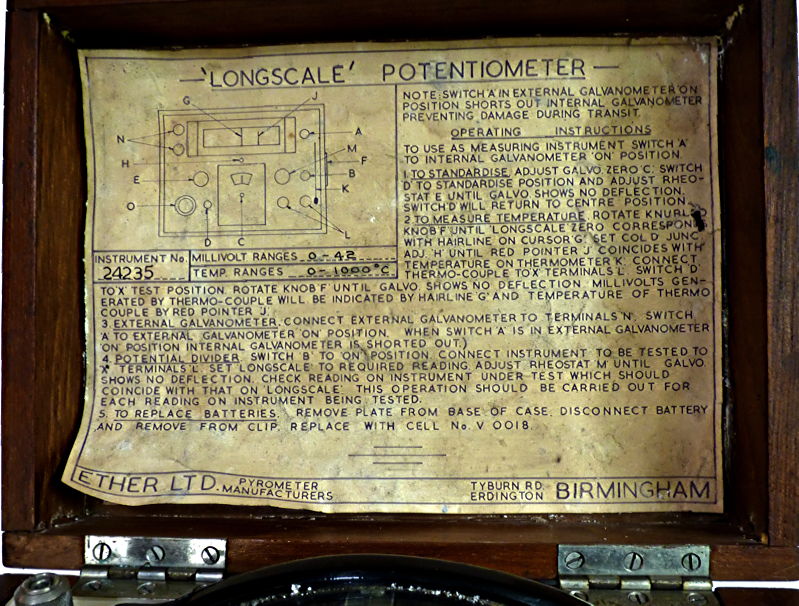 'LONGSCALE' POTENTIOMETER
G
J
N
A
M
H
F
E
B
K
O
D
C
L
INSTRUMENT No. MILLIVOLT RANGES 0-42
24235 TEMP. RANGES 0-1000°C
NOTE: SWITCH 'A' IN EXTERNAL GALVANOMETER 'ON'
POSITION SHORTS OUT INTERNAL GALVANOMETER
PREVENTING DAMAGE DURING TRANSIT.
OPERATING INSTRUCTIONS
TO USE AS MEASURING INSTRUMENT SWITCH 'A'
TO INTERNAL GALVANOMETER 'ON' POSITION.
1. TO STANDARDISE. ADJUST GALVO. ZERO 'C'. SWITCH
'D' TO STANDARDISE POSITION AND ADJUST RHEO-
STAT E UNTIL GALVO. SHOWS NO DEFLECTION.
SWITCH 'D' WILL RETURN TO CENTRE POSITION.
2. TO MEASURE TEMPERATURE. ROTATE KNURLED
KNOB 'F' UNTIL 'LONGSCALE' ZERO CORRESPOND
WITH HAIRLINE ON CURSOR 'G'. SET COLD JUNC.
ADJ. 'H' UNTIL RED POINTER J COINCIDES WITH
TEMPERATURE ON THERMOMETER K. CONNECT
THERMO-COUPLE TO 'X' TERMINALS 'L'. SWITCH 'D'
TO 'X' TEST POSITION. ROTATE KNOB 'F' UNTIL GALVO. SHOWS NO DEFLECTION. MILLIVOLTS GEN-
ERATED BY THERMO-COUPLE WILL BE INDICATED BY HAIRLINE 'G' AND TEMPERATURE OF THERMO
COUPLE BY RED POINTER 'J'.
3. EXTERNAL GALVANOMETER. CONNECT EXTERNAL GALVANOMETER TO TERMINALS 'N'. SWITCH
'A' TO EXTERNAL GALVANOMETER 'ON' POSITION. WHEN SWITCH 'A' IS IN EXTERNAL GALVANOMETER
'ON' POSITION INTERNAL GALVANOMETER IS SHORTED OUT.)
4. POTENTIAL DIVIDER. SWITCH 'B' TO 'ON' POSITION. CONNECT INSTRUMENT TO BE TESTED TO
'X' TERMINALS 'L'. SET LONGSCALE TO REQUIRED READING. ADJUST RHEOSTAT M UNTIL GALVO.
SHOWS NO DEFLECTION. CHECK READING ON INSTRUMENT UNDER TEST WHICH SHOULD
COINCIDE WITH THAT ON 'LONGSCALE'. THIS OPERATION SHOULD BE CARRIED OUT FOR
EACH READING ON INSTRUMENT BEING TESTED.
5. TO REPLACE BATTERIES. REMOVE PLATE FROM BASE OF CASE, DISCONNECT BATTERY
AND REMOVE FROM CLIP. REPLACE WITH CELL No. V 0018.
ETHER LTD. PYROMETER MANUFACTURERS
TYBURN RD. ERDINGTON BIRMINGHAM